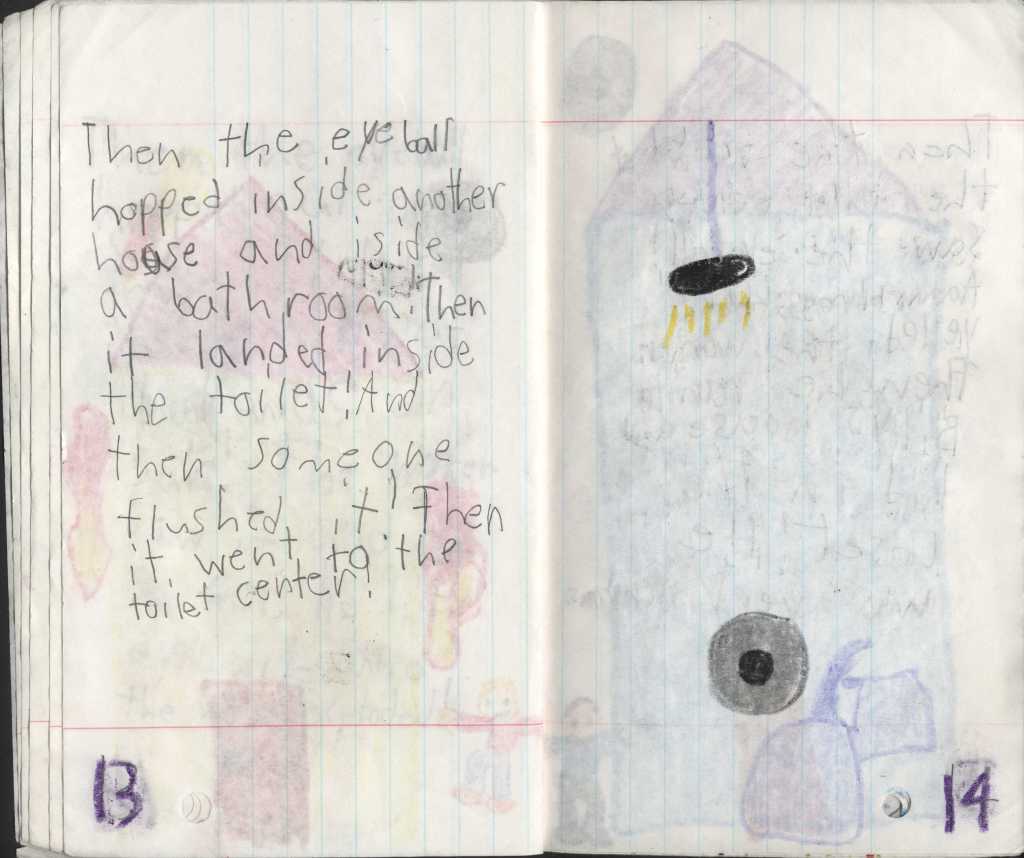 Then the eyeball
hopped inside another
house and iside
a bathroom. Then
it landed inside
the toilet! And
then someone
flushed it! Then
it went to the
toilet center!
13
14